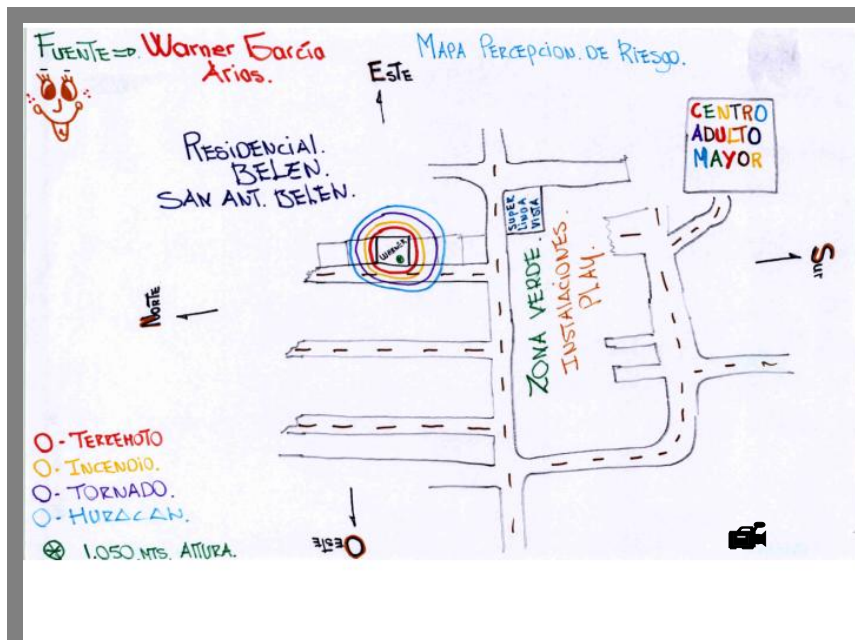 FUENTE ⇒ Warner García
Arias.
MAPA PERCEPCION. DE RIESGO.
ESTE
RESIDENCIAL.
BELEN.
SAN ANT. BELEN.
CENTRO
ADULTO
MAYOR
SUPER
LINDA
VISTA
WARNER
ZONA VERDE.
INSTALACIONES
PLAY.
SUR
NORTE
O - TERREMOTO
O - INCENDIO.
O - TORNADO.
O - HURACAN.
1.050 MTS. ALTURA.
OESTE